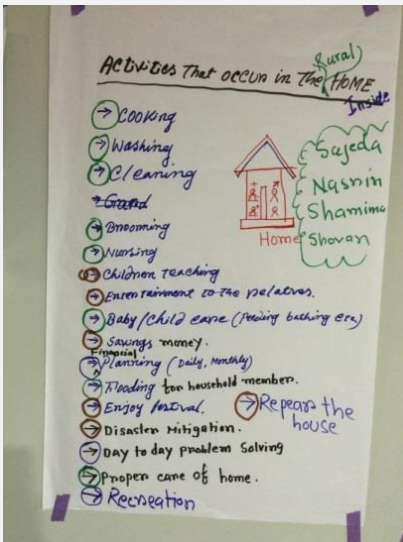 Rural
Activities That occur in The HOME
Inside
→ Cooking
→ Washing
→ Cleaning
→ Brooming
→ Nursing
→ Children teaching
→ Entertainment to the relatives.
→ Baby/Child care (Feeding bathing etc)
→ Savings money.
Financial
→ Planning (Daily, Monthly)
→ Fooding for household member.
→ Enjoy festival.
→ Disaster Mitigation.
→ Day to day problem Solving
→ Proper care of home.
→ Recreation
→ Repears the
house
Home
Sajeda
Nasrin
Shamima
Shovan